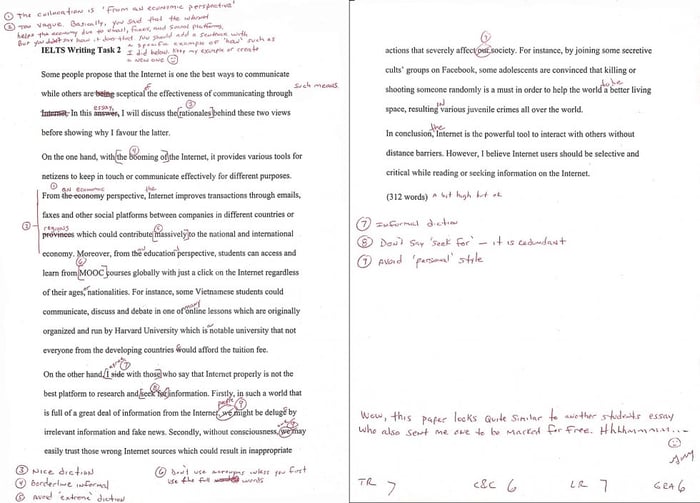 ① The collocation is 'From an economic perspective'
② Too vague. Basically, you said that the internet
helps the economy due to email, faxes, and social platforms,
But you didn't say how it does that. You should add a sentence with
a specific example of "how" such as
I did below. Keep my example or create
a new one ☺
IELTS Writing Task 2
Some people propose that the Internet is one the best ways to communicate
while others are being sceptical of the effectiveness of communicating through such means.
Internet. In this answer, essay, I will discuss the [rationales] ③ behind these two views
before showing why I favour the latter.
On the one hand, with [the booming of] ④ the Internet, it provides various tools for
netizens to keep in touch or communicate effectively for different purposes.
① an economic the
From the economic perspective, Internet improves transactions through emails,
faxes and other social platforms between companies in different countries or
② regions ⑤
provinces which could contribute [massively] to the national and international
economy. Moreover, from the education perspective, students can access and
⑥
learn from [MOOC] courses globally with just a click on the Internet regardless
of their ages, or nationalities. For instance, some Vietnamese students could
communicate, discuss and debate in one of many online lessons which are originally
organized and run by Harvard University which is notable university that not
everyone from the developing countries would afford the tuition fee.
On the other hand, I side with those who say that Internet properly is not the
⑦
best platform to research and seek for information. Firstly, in such a world that
⑧
is full of a great deal of information from the Internet, we might be deluge by
people ⑨
irrelevant information and fake news. Secondly, without consciousness, we may
⑨
easily trust those wrong Internet sources which could result in inappropriate
③ Nice diction
④ Borderline informal
⑤ avoid 'extreme' diction
⑥ Don't use acronyms unless you first
use the full words
actions that severely affect our society. For instance, by joining some secretive
cults' groups on Facebook, some adolescents are convinced that killing or
shooting someone randomly is a must in order to help the world to be a better living
space, resulting in various juvenile crimes all over the world.
In conclusion, the Internet is the powerful tool to interact with others without
distance barriers. However, I believe Internet users should be selective and
critical while reading or seeking information on the Internet.
(312 words) a bit high but ok
⑦ Informal diction
⑧ Don't say 'seek for' – it is redundant
⑨ Avoid 'personal' style
Wow, this paper looks quite similar to another students essay
who also sent me one to be marked for free. Hhhmmmm...
☺
TR 7 C&C 6 LR 7 GRA 6